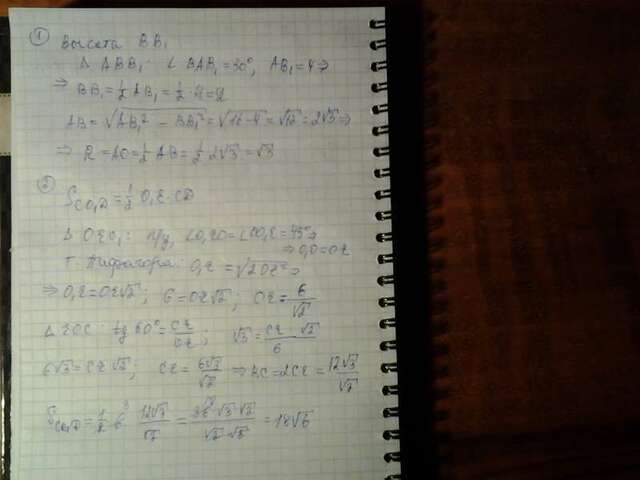 ① Высота BB₁
Δ ABB₁: ∠ BAB₁ = 30°, AB₁ = 4 ⇒
⇒ BB₁ = ½ AB₁ = ½ · 4 = 2
AB = √(AB₁² − BB₁²) = √(16 − 4) = √12 = 2√3 ⇒
⇒ R = AO = ½ AB = ½ 2√3 = √3
② S_CO₁D = ½ O₁E · CD
Δ OEO₁: п/у, ∠O₁EO = ∠OO₁E = 45° ⇒
⇒ O₁O = OE
т. Пифагора: O₁E = √(2OE²) ⇒
⇒ O₁E = OE√2; 6 = OE√2; OE = 6/√2
Δ EOC: tg 60° = CE/OE; √3 = CE · √2/6
6√3 = CE √2; CE = 6√3/√2 ⇒ DC = 2CE = 12√3/√2